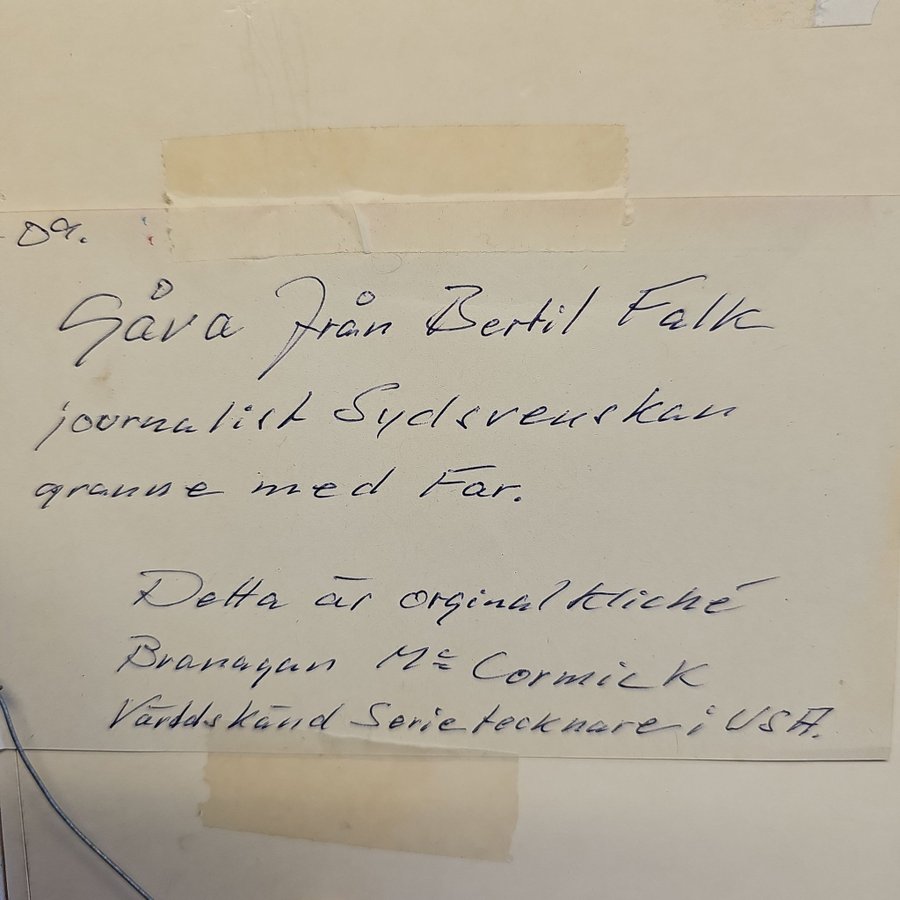 -09.
Gåva från Bertil Falk
journalist Sydsvenskan
granne med Far.
Detta är orginal kliché
Branagan Mc Cormick
Världskänd Serietecknare i USA.